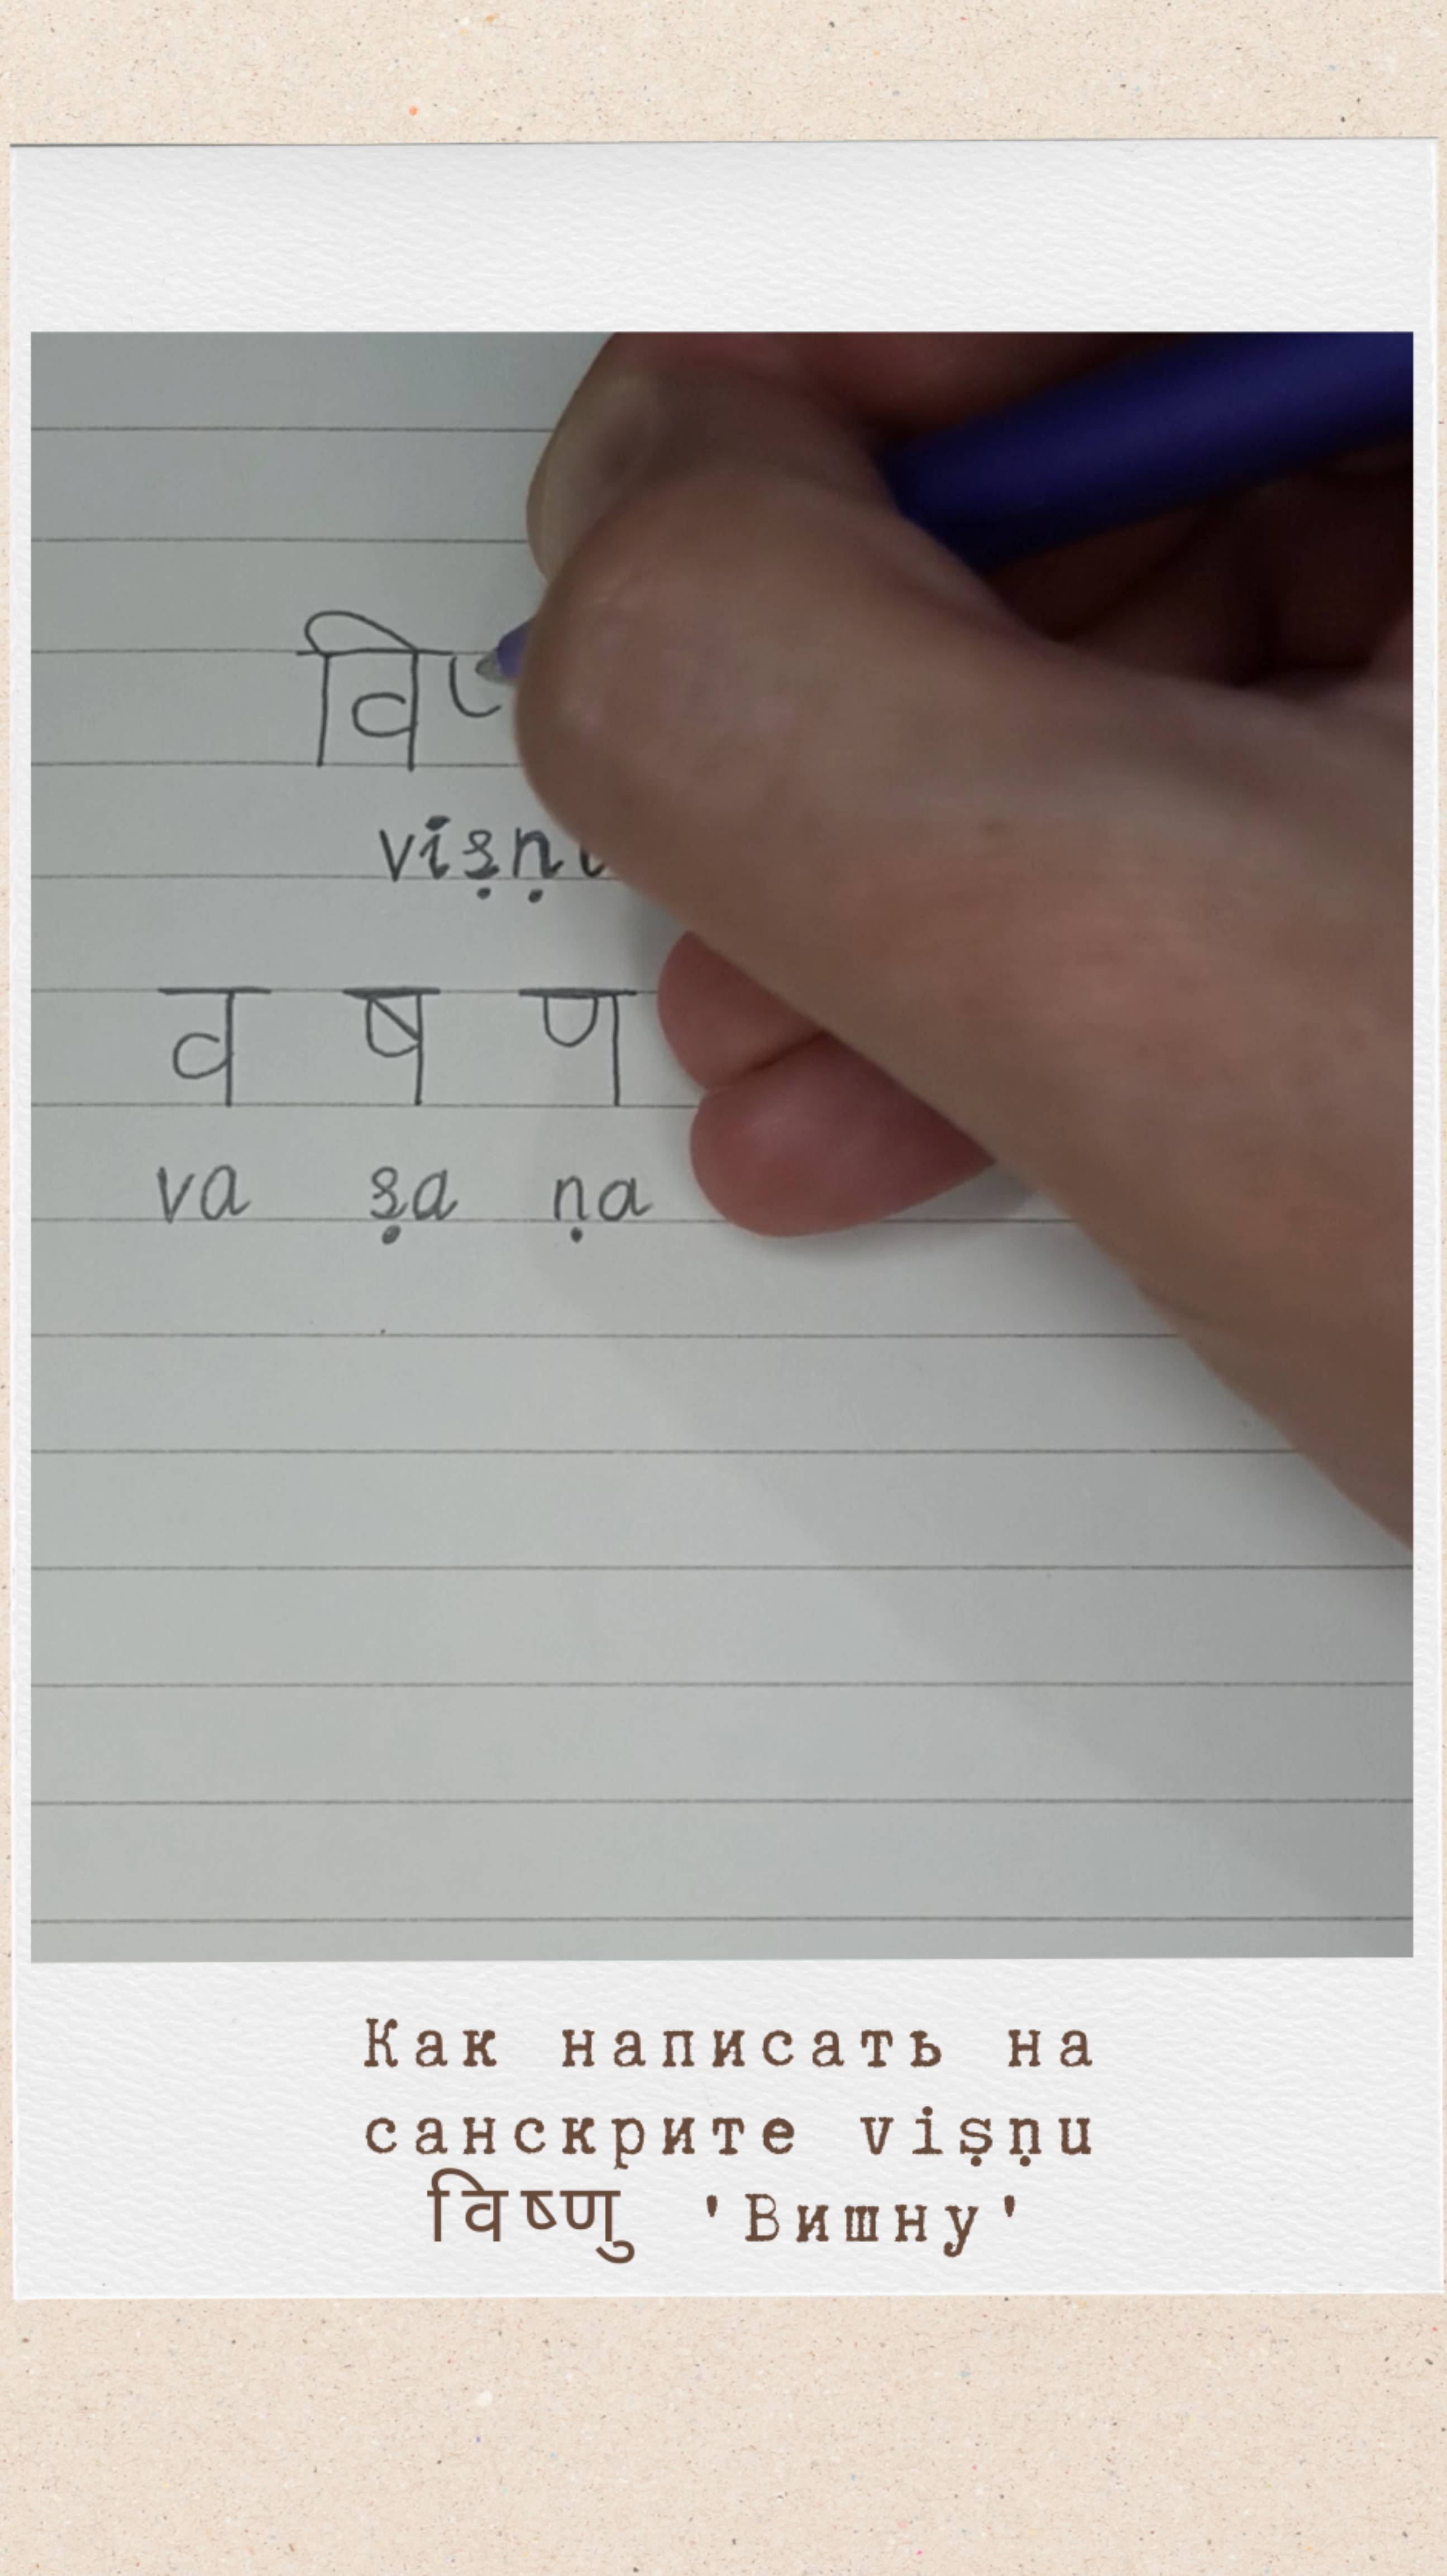 वि
viṣṇ
व ष ण
va ṣa ṇa
Как написать на
санскрите viṣṇu
विष्णु 'Вишну'